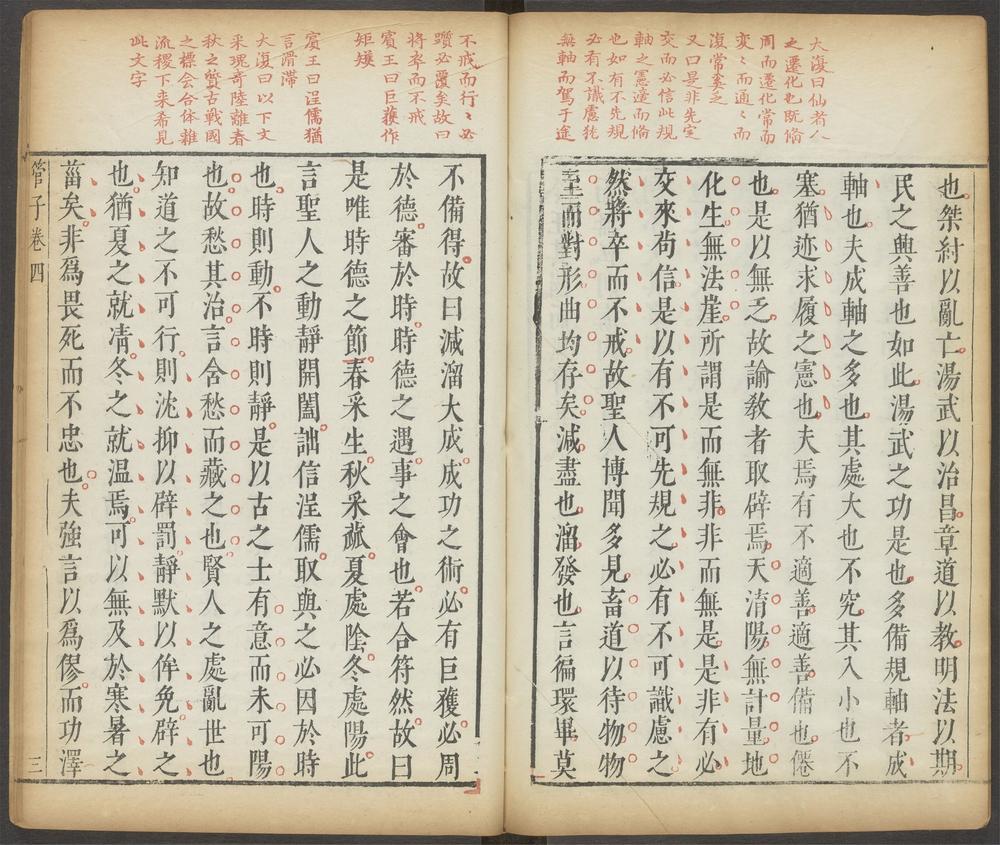 大復曰仙者人
之遷化也既脩
周而遷化常而
變々而通々而
復常矣乏
又曰是非先定
交而必信此規
軸之憲達而脩
也如有不先規
必有不識慮恍
無軸而駕于途
也桀紂以亂亡湯武以治昌章道以教明法以期
民之興善也如此湯武之功是也多備規軸者成
軸也夫成軸之多也其處大也不究其入小也不
塞猶迹求履之憲也夫焉有不適善適善備也僊
也是以無乏故諭教者取辟焉天淯陽無計量地
化生無法崖所謂是而無非非而無是是非有必
交來苟信是以有不可先規之必有不可識慮之
然將卒而不戒故聖人博聞多見畜道以待物物
至而對形曲均存矣減盡也溜發也言徧環畢莫
不戒而行々必
躓必覆矣故曰
將卒而不戒
賓王曰巨獲作
矩矱
賓王曰浧儒猶
言滑滯
大復曰以下文
采瑰奇陸離春
秋之贊古戰國
之標会合体雜
流稷下来希見
此文字
不備得故曰減溜大成成功之術必有巨獲必周
於德審於時時德之遇事之會也若合符然故曰
是唯時德之節春采生秋采蓏夏處陰冬處陽此
言聖人之動靜開闔詘信浧儒取與之必因於時
也時則動不時則靜是以古之士有意而未可陽
也故愁其治言含愁而藏之也賢人之處亂世也
知道之不可行則沈抑以辟罰靜默以侔免辟之
也猶夏之就凊冬之就温焉可以無及於寒暑之
菑矣非爲畏死而不忠也夫強言以爲僇而功澤
管子卷四
三